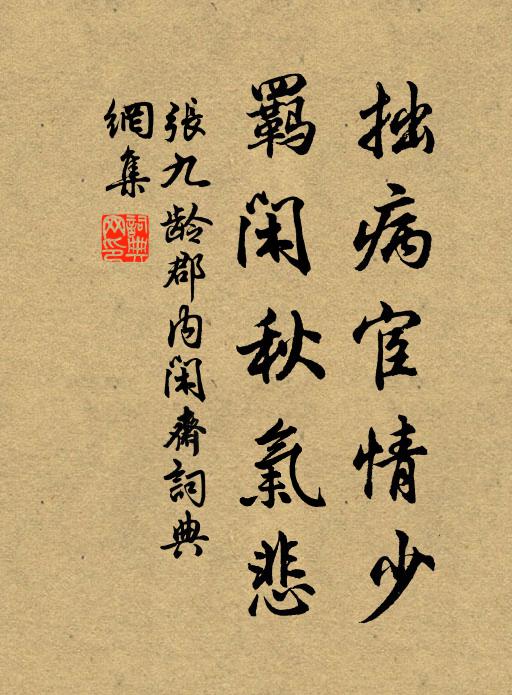 拙病宦情少
羇閑秋氣悲
張九齡郡內閑齋詞典
網集
詞典網印